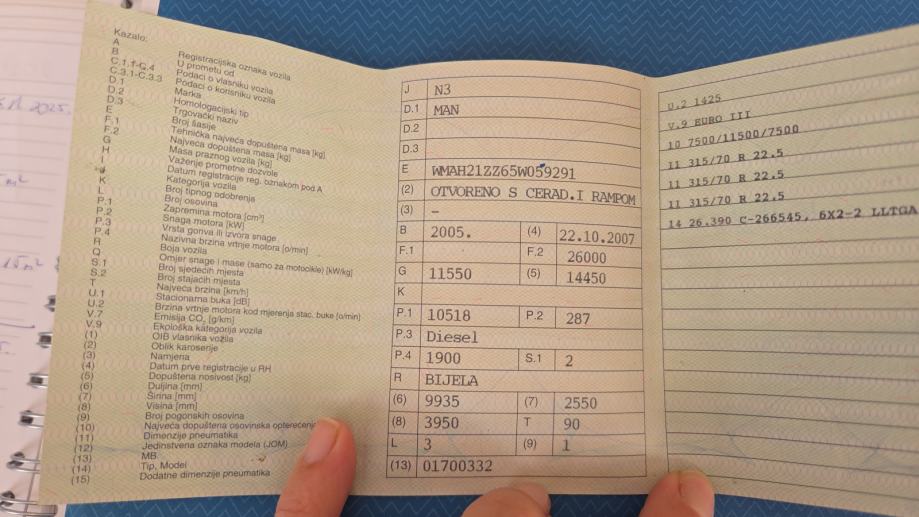 Kazalo:
A Registracijska oznaka vozila
B U prometu od
C.1.1-C.4 Podaci o vlasniku vozila
C.3.1-C.3.3 Podaci o korisniku vozila
D.1 Marka
D.2 Homologacijski tip
D.3 Trgovački naziv
E Broj šasije
F.1 Tehnička najveća dopuštena masa [kg]
F.2 Najveća dopuštena masa [kg]
G Masa praznog vozila [kg]
H Važenje prometne dozvole
I Datum registracije reg. oznakom pod A
Kategorija vozila
K Broj tipnog odobrenja
L Broj osovina
P.1 Zapremina motora [cm³]
P.2 Snaga motora [kW]
P.3 Vrsta goriva ili izvora snage
P.4 Nazivna brzina vrtnje motora [o/min]
R Boja vozila
Q Omjer snage i mase (samo za motocikle) [kW/kg]
S.1 Broj sjedećih mjesta
S.2 Broj stajaćih mjesta
T Najveća brzina [km/h]
U.1 Stacionarna buka [dB]
U.2 Brzina vrtnje motora kod mjerenja stac. buke [o/min]
V.7 Emisija CO₂ [g/km]
V.9 Ekološka kategorija vozila
(1) OIB vlasnika vozila
(2) Oblik karoserije
(3) Namjena
(4) Datum prve registracije u RH
(5) Dopuštena nosivost [kg]
(6) Duljina [mm]
(7) Širina [mm]
(8) Visina [mm]
(9) Broj pogonskih osovina
(10) Najveća dopuštena osovinska opterećenja
(11) Dimenzije pneumatika
(12) Jedinstvena oznaka modela (JOM)
(13) MB
(14) Tip, Model
(15) Dodatne dimenzije pneumatika
J N3
D.1 MAN
D.2
D.3
E WMAH21ZZ65W059291
(2) OTVORENO S CERAD.I RAMPOM
(3) –
B 2005. (4) 22.10.2007
F.1 F.2 26000
G 11550 (5) 14450
K
P.1 10518 P.2 287
P.3 Diesel
P.4 1900 S.1 2
R BIJELA
(6) 9935 (7) 2550
(8) 3950 T 90
L 3 (9) 1
(13) 01700332
U.2 1425
V.9 EURO III
10 7500/11500/7500
11 315/70 R 22.5
11 315/70 R 22.5
11 315/70 R 22.5
14 26.390 C-266545, 6X2-2 LLTGA